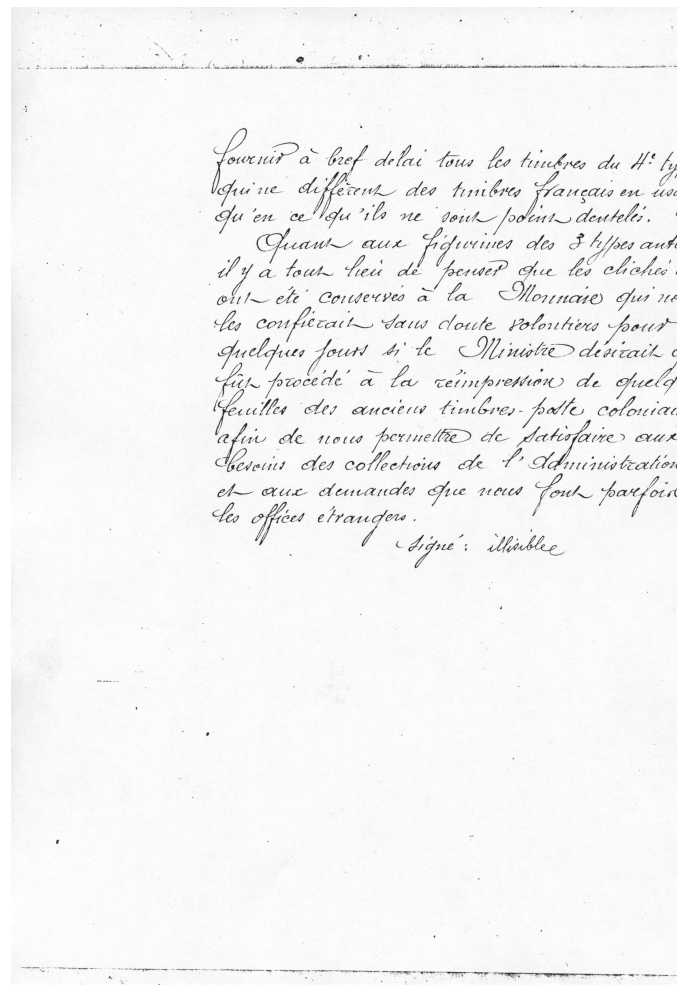 fournir à bref délai tous les timbres du 4e ty
qui ne diffèrent des timbres français en usa
qu'en ce qu'ils ne sont point dentelés.
Quant aux figurines des 3 types anté
il y a tout lieu de penser que les clichés
ont été conservés à la Monnaie qui no
les confierait sans doute volontiers pour
quelques jours si le Ministre désirait q
fût procédé à la réimpression de quelq
feuilles des anciens timbres-poste coloniau
afin de nous permettre de satisfaire aux
besoins des collections de l'Administration
et aux demandes que nous font parfois
les offices étrangers.
signé : illisible